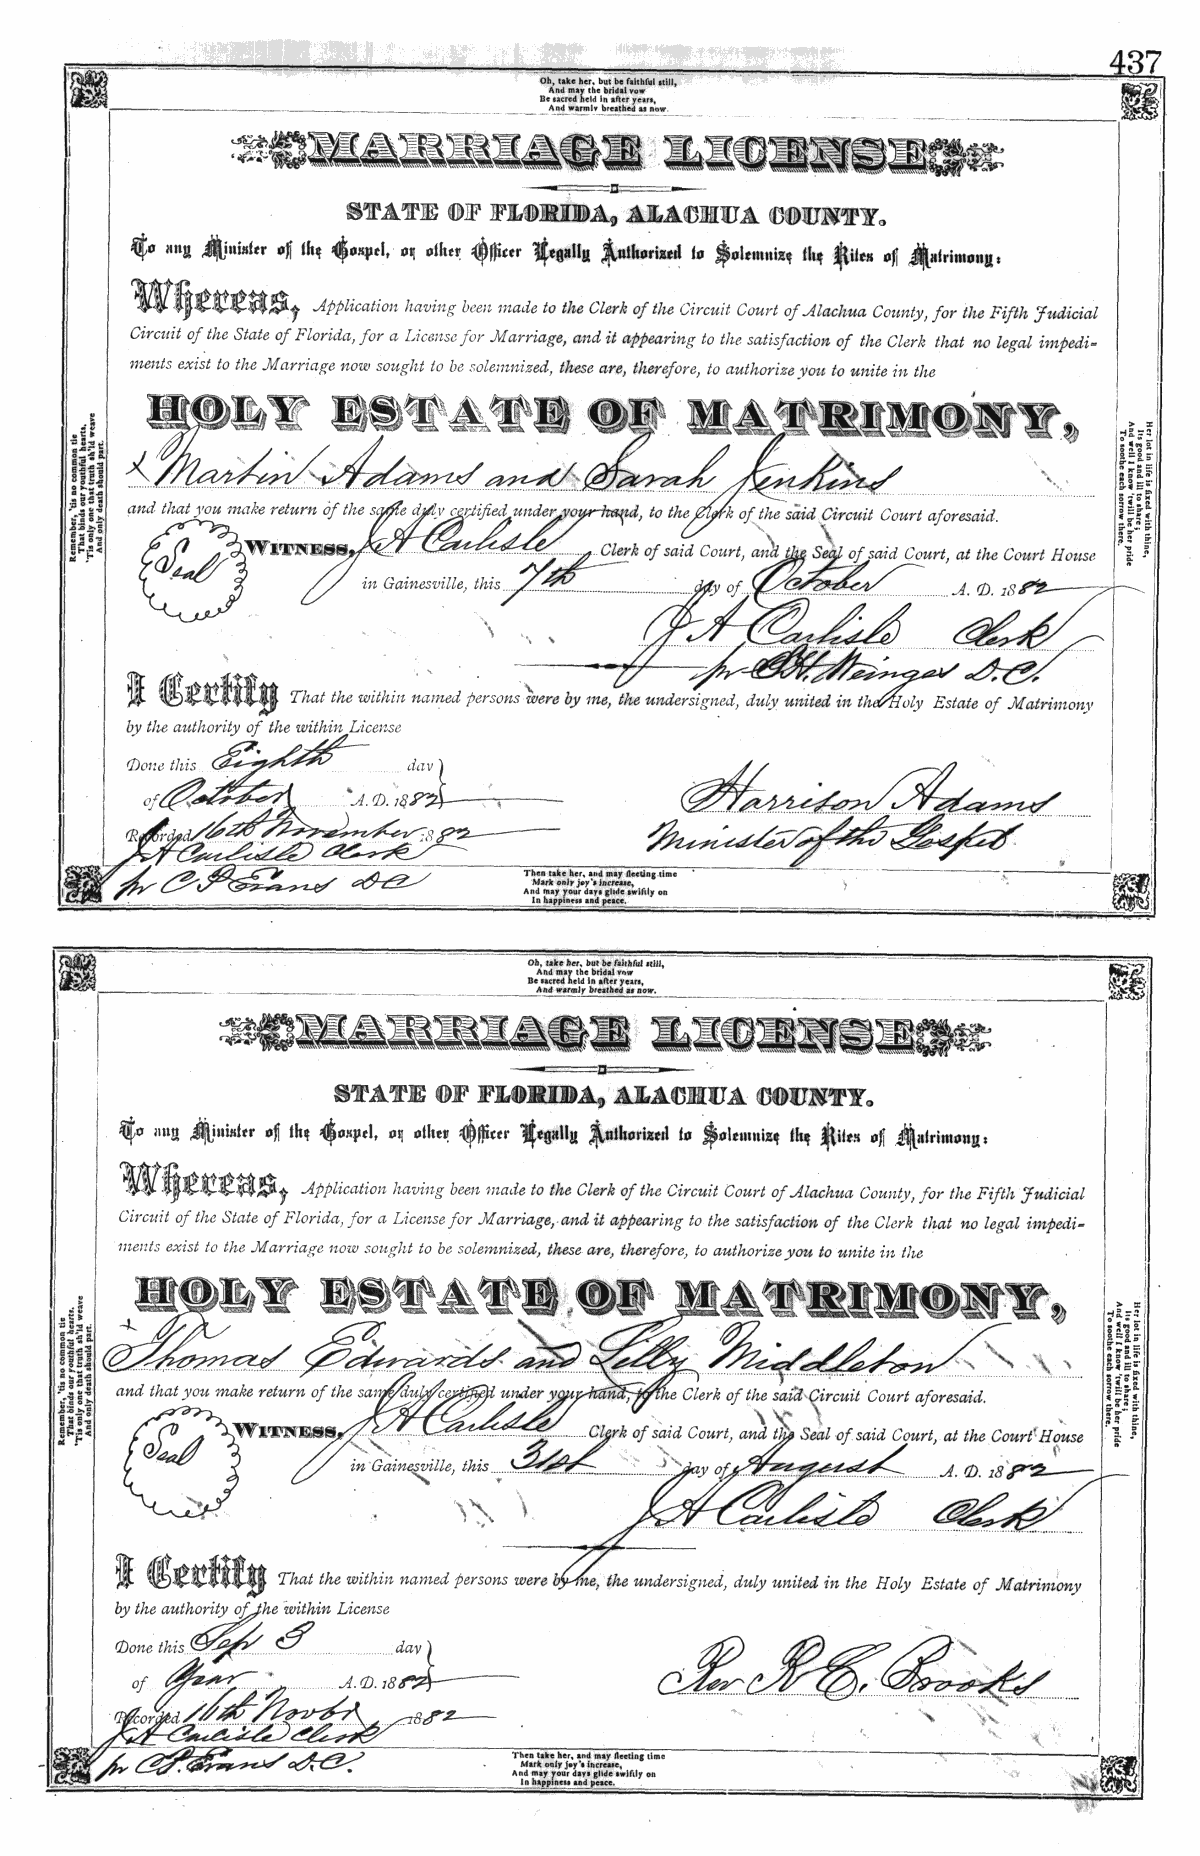 437
Oh, take her, but be faithful still,
And may the bridal vow
Be sacred held in after years,
And warmly breathed as now.
MARRIAGE LICENSE
STATE OF FLORIDA, ALACHUA COUNTY.
To any Minister of the Gospel, or other Officer Legally Authorized to Solemnize the Rites of Matrimony:
Whereas, Application having been made to the Clerk of the Circuit Court of Alachua County, for the Fifth Judicial
Circuit of the State of Florida, for a License for Marriage, and it appearing to the satisfaction of the Clerk that no legal impedi-
ments exist to the Marriage now sought to be solemnized, these are, therefore, to authorize you to unite in the
HOLY ESTATE OF MATRIMONY,
x Martin Adams and Sarah Jenkins
and that you make return of the same duly certified under your hand, to the Clerk of the said Circuit Court aforesaid.
Seal
WITNESS, J A Carlisle Clerk of said Court, and the Seal of said Court, at the Court House
in Gainesville, this 7th day of October A. D. 1882
J A Carlisle Clerk
pr Weinges D.C.
I Certify That the within named persons were by me, the undersigned, duly united in the Holy Estate of Matrimony
by the authority of the within License
Done this Eighth day
of October A.D. 1882
Harrison Adams
Recorded 16th November 1882
Minister of the Gospel
J A Carlisle Clerk
pr C P Evans DC
Remember, 'tis no common tie
That binds our youthful hearts,
'Tis only one that truth sh'ld weave
And only death should part.
Her lot in life is fixed with thine,
Its good and ill to share;
And well I know 'twill be her pride
To soothe each sorrow there.
Then take her, and may fleeting time
Mark only joy's increase,
And may your days glide swiftly on
In happiness and peace.
Oh, take her, but be faithful still,
And may the bridal vow
Be sacred held in after years,
And warmly breathed as now.
MARRIAGE LICENSE
STATE OF FLORIDA, ALACHUA COUNTY.
To any Minister of the Gospel, or other Officer Legally Authorized to Solemnize the Rites of Matrimony:
Whereas, Application having been made to the Clerk of the Circuit Court of Alachua County, for the Fifth Judicial
Circuit of the State of Florida, for a License for Marriage, and it appearing to the satisfaction of the Clerk that no legal impedi-
ments exist to the Marriage now sought to be solemnized, these are, therefore, to authorize you to unite in the
HOLY ESTATE OF MATRIMONY,
x Thomas Edwards and Lilly Middleton
and that you make return of the same duly certified under your hand, to the Clerk of the said Circuit Court aforesaid.
Seal
WITNESS, J A Carlisle Clerk of said Court, and the Seal of said Court, at the Court House
in Gainesville, this 31st day of August A. D. 1882
J A Carlisle Clerk
I Certify That the within named persons were by me, the undersigned, duly united in the Holy Estate of Matrimony
by the authority of the within License
Done this Sep 3 day
of Year A.D. 1882
Rev R E. Brooks
Recorded 16th Novbr 1882
J A Carlisle Clerk
pr C P. Evans D.C.
Remember, 'tis no common tie
That binds our youthful hearts,
'Tis only one that truth sh'ld weave
And only death should part.
Her lot in life is fixed with thine,
Its good and ill to share;
And well I know 'twill be her pride
To soothe each sorrow there.
Then take her, and may fleeting time
Mark only joy's increase,
And may your days glide swiftly on
In happiness and peace.